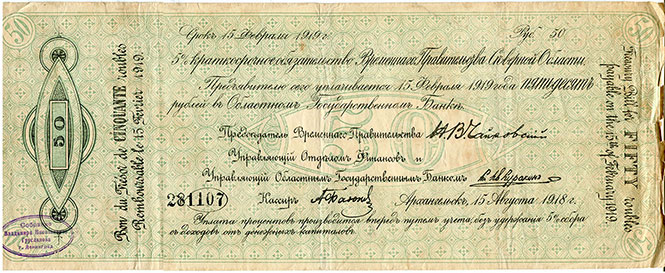 50
Срокъ 15 Февраля 1919 г.
Руб. 50
5% Краткосрочное обязательство Временнаго Правительства Сѣверной Области.
Предъявителю сего уплачивается 15 Февраля 1919 года пятьдесятъ
рублей въ Областномъ Государственномъ Банкѣ.
Предсѣдатель Временнаго Правительства Н. В. Чайковский
Управляющій Отдѣломъ Финансовъ и
Управляющій Областнымъ Государственнымъ Банкомъ
281107
Кассиръ
Архангельскъ, 15 Августа 1918 г.
Уплата процентовъ производится впередъ путемъ учета, безъ удержанія 5% сбора
съ доходовъ отъ денежныхъ капиталовъ.
Bon du Trésor de CINQUANTE roubles
Remboursable le 15 Février 1919.
50
Treasury Bill for FIFTY roubles
payable on the 15th of February 1919.
50
Собрание
Владимира
г. Ленинград